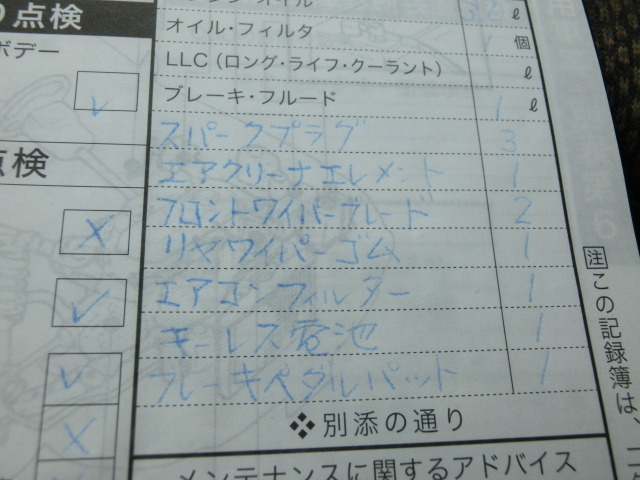 の点検
ボデー
オイル
3.0 ℓ
オイル・フィルタ 1 個
LLC(ロング・ライフ・クーラント) ℓ
ブレーキ・フルード 1 ℓ
スパークプラグ 3
エアクリーナエレメント 1
フロントワイパーブレード 2
リヤワイパーゴム 1
エアコンフィルター 1
キーレス電池 1
ブレーキペダルパット 1
❖別添の通り
メンテナンスに関するアドバイス
点検
注 この記録簿は、